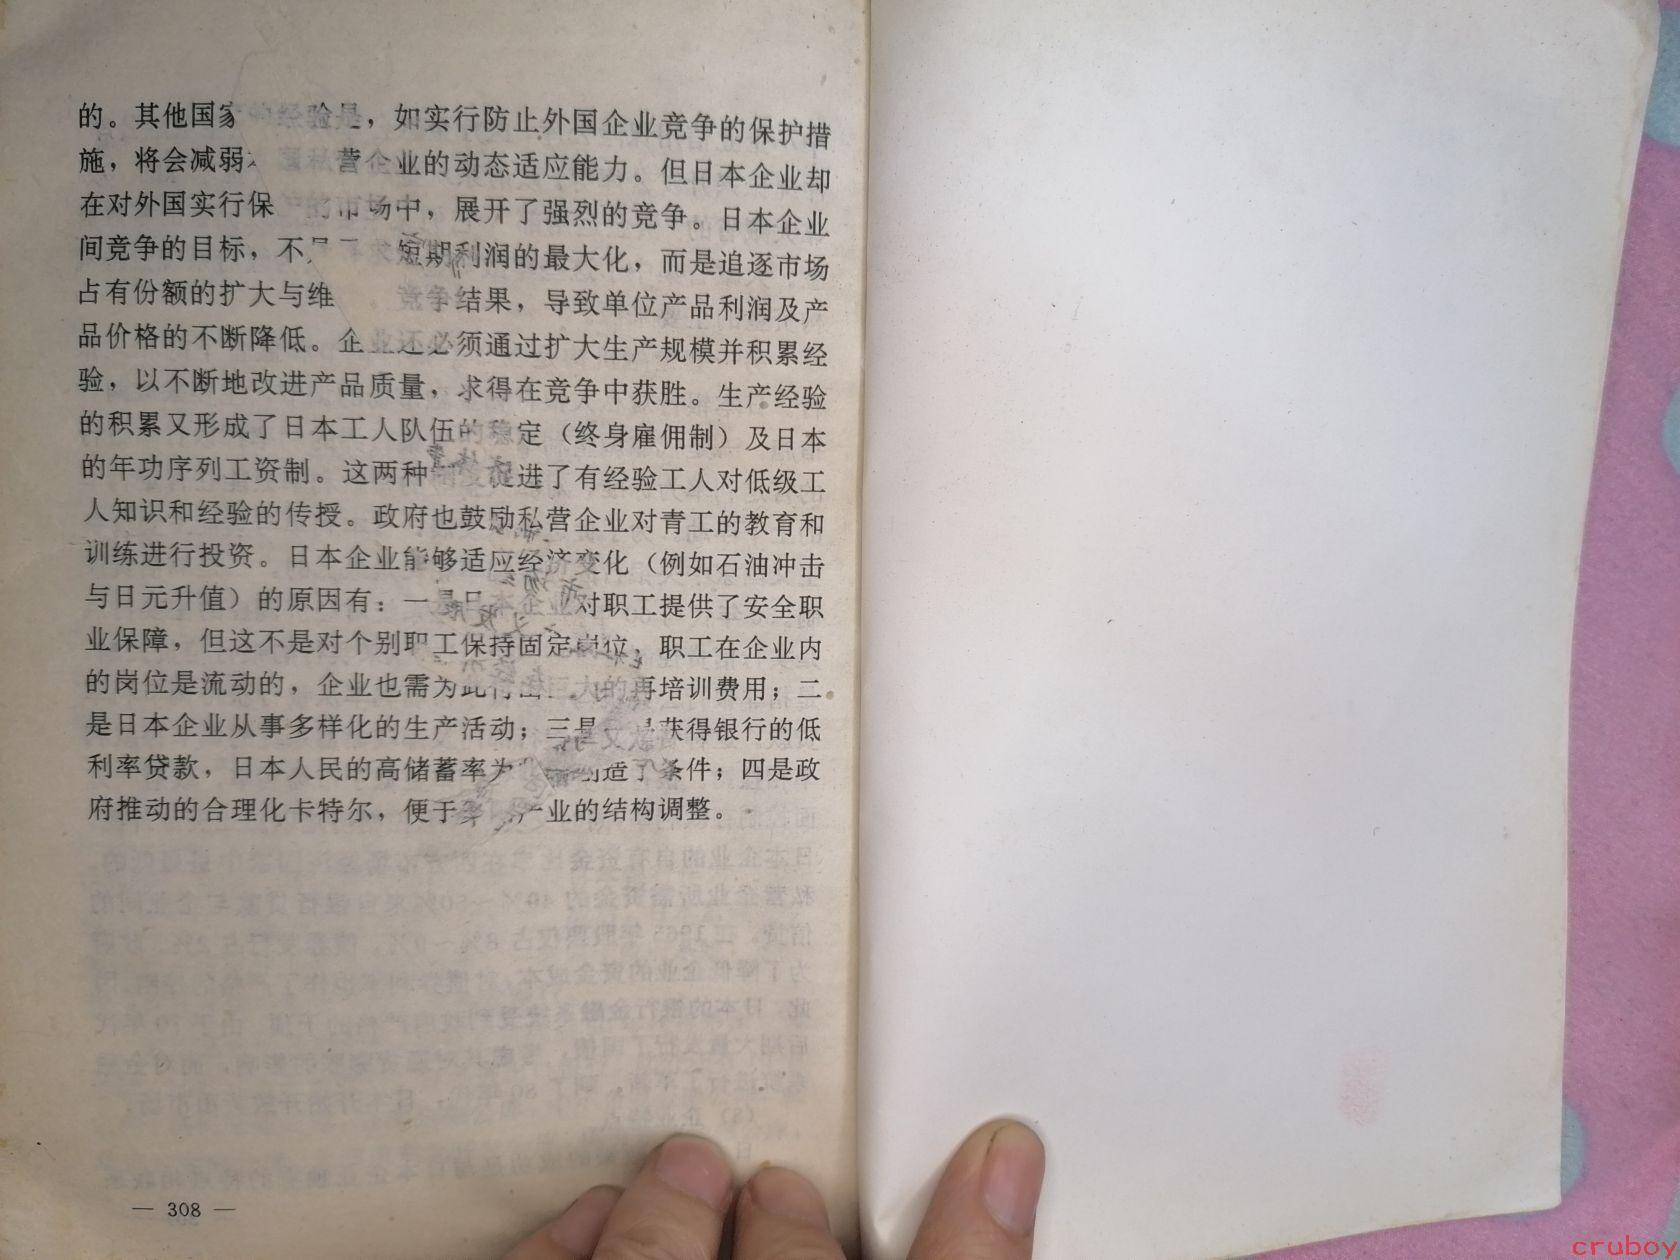 的。其他国家的经验是，如实行防止外国企业竞争的保护措
施，将会减弱私营企业的动态适应能力。但日本企业却
在对外国实行保的市场中，展开了强烈的竞争。日本企业
间竞争的目标，不求短期利润的最大化，而是追逐市场
占有份额的扩大与维。竞争结果，导致单位产品利润及产
品价格的不断降低。企业还必须通过扩大生产规模并积累经
验，以不断地改进产品质量，求得在竞争中获胜。生产经验
的积累又形成了日本工人队伍的稳定（终身雇佣制）及日本
的年功序列工资制。这两种促进了有经验工人对低级工
人知识和经验的传授。政府也鼓励私营企业对青工的教育和
训练进行投资。日本企业能够适应经济变化（例如石油冲击
与日元升值）的原因有：一是日本企业对职工提供了安全职
业保障，但这不是对个别职工保持固定岗位，职工在企业内
的岗位是流动的，企业也需为此付出巨大的再培训费用；二
是日本企业从事多样化的生产活动；三是获得银行的低
利率贷款，日本人民的高储蓄率为创造了条件；四是政
府推动的合理化卡特尔，便于产业的结构调整。
— 308 —
cruboy